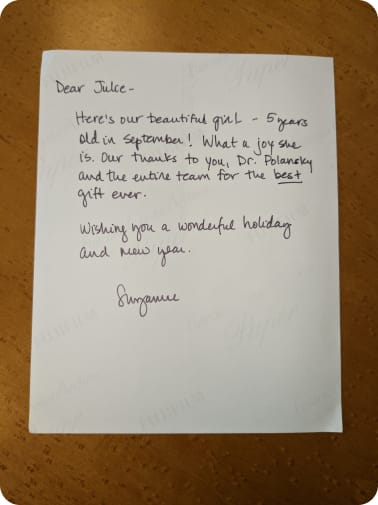 Dear Julce -
Here's our beautiful girl - 5 years
old in September! What a joy she
is. Our thanks to you, Dr. Polansky
and the entire team for the best
gift ever.
Wishing you a wonderful holiday
and new year.
Suzanne
FUJIFILM
Paper
FUJIFILM